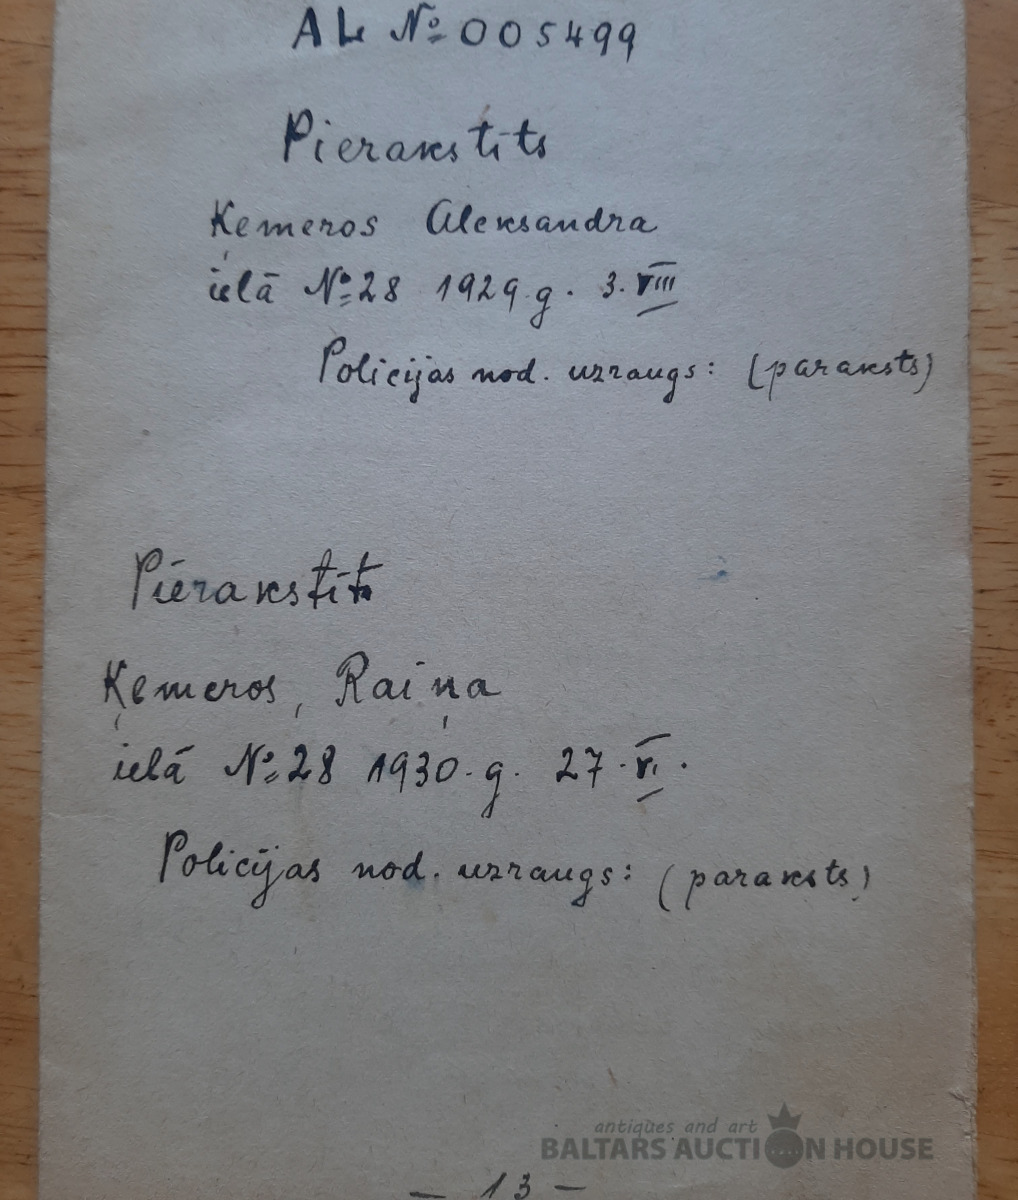 AL № 005499
Pierakstīts
Ķemeros Aleksandra
ielā №28 1929.g. 3.VIII
Policijas nod. uzraugs: (paraksts)
Pierakstīts
Ķemeros, Raiņa
ielā №28 1930.g. 27.VI.
Policijas nod. uzraugs: (paraksts)
antiques and art
BALTARS AUCTION HOUSE
— 13 —